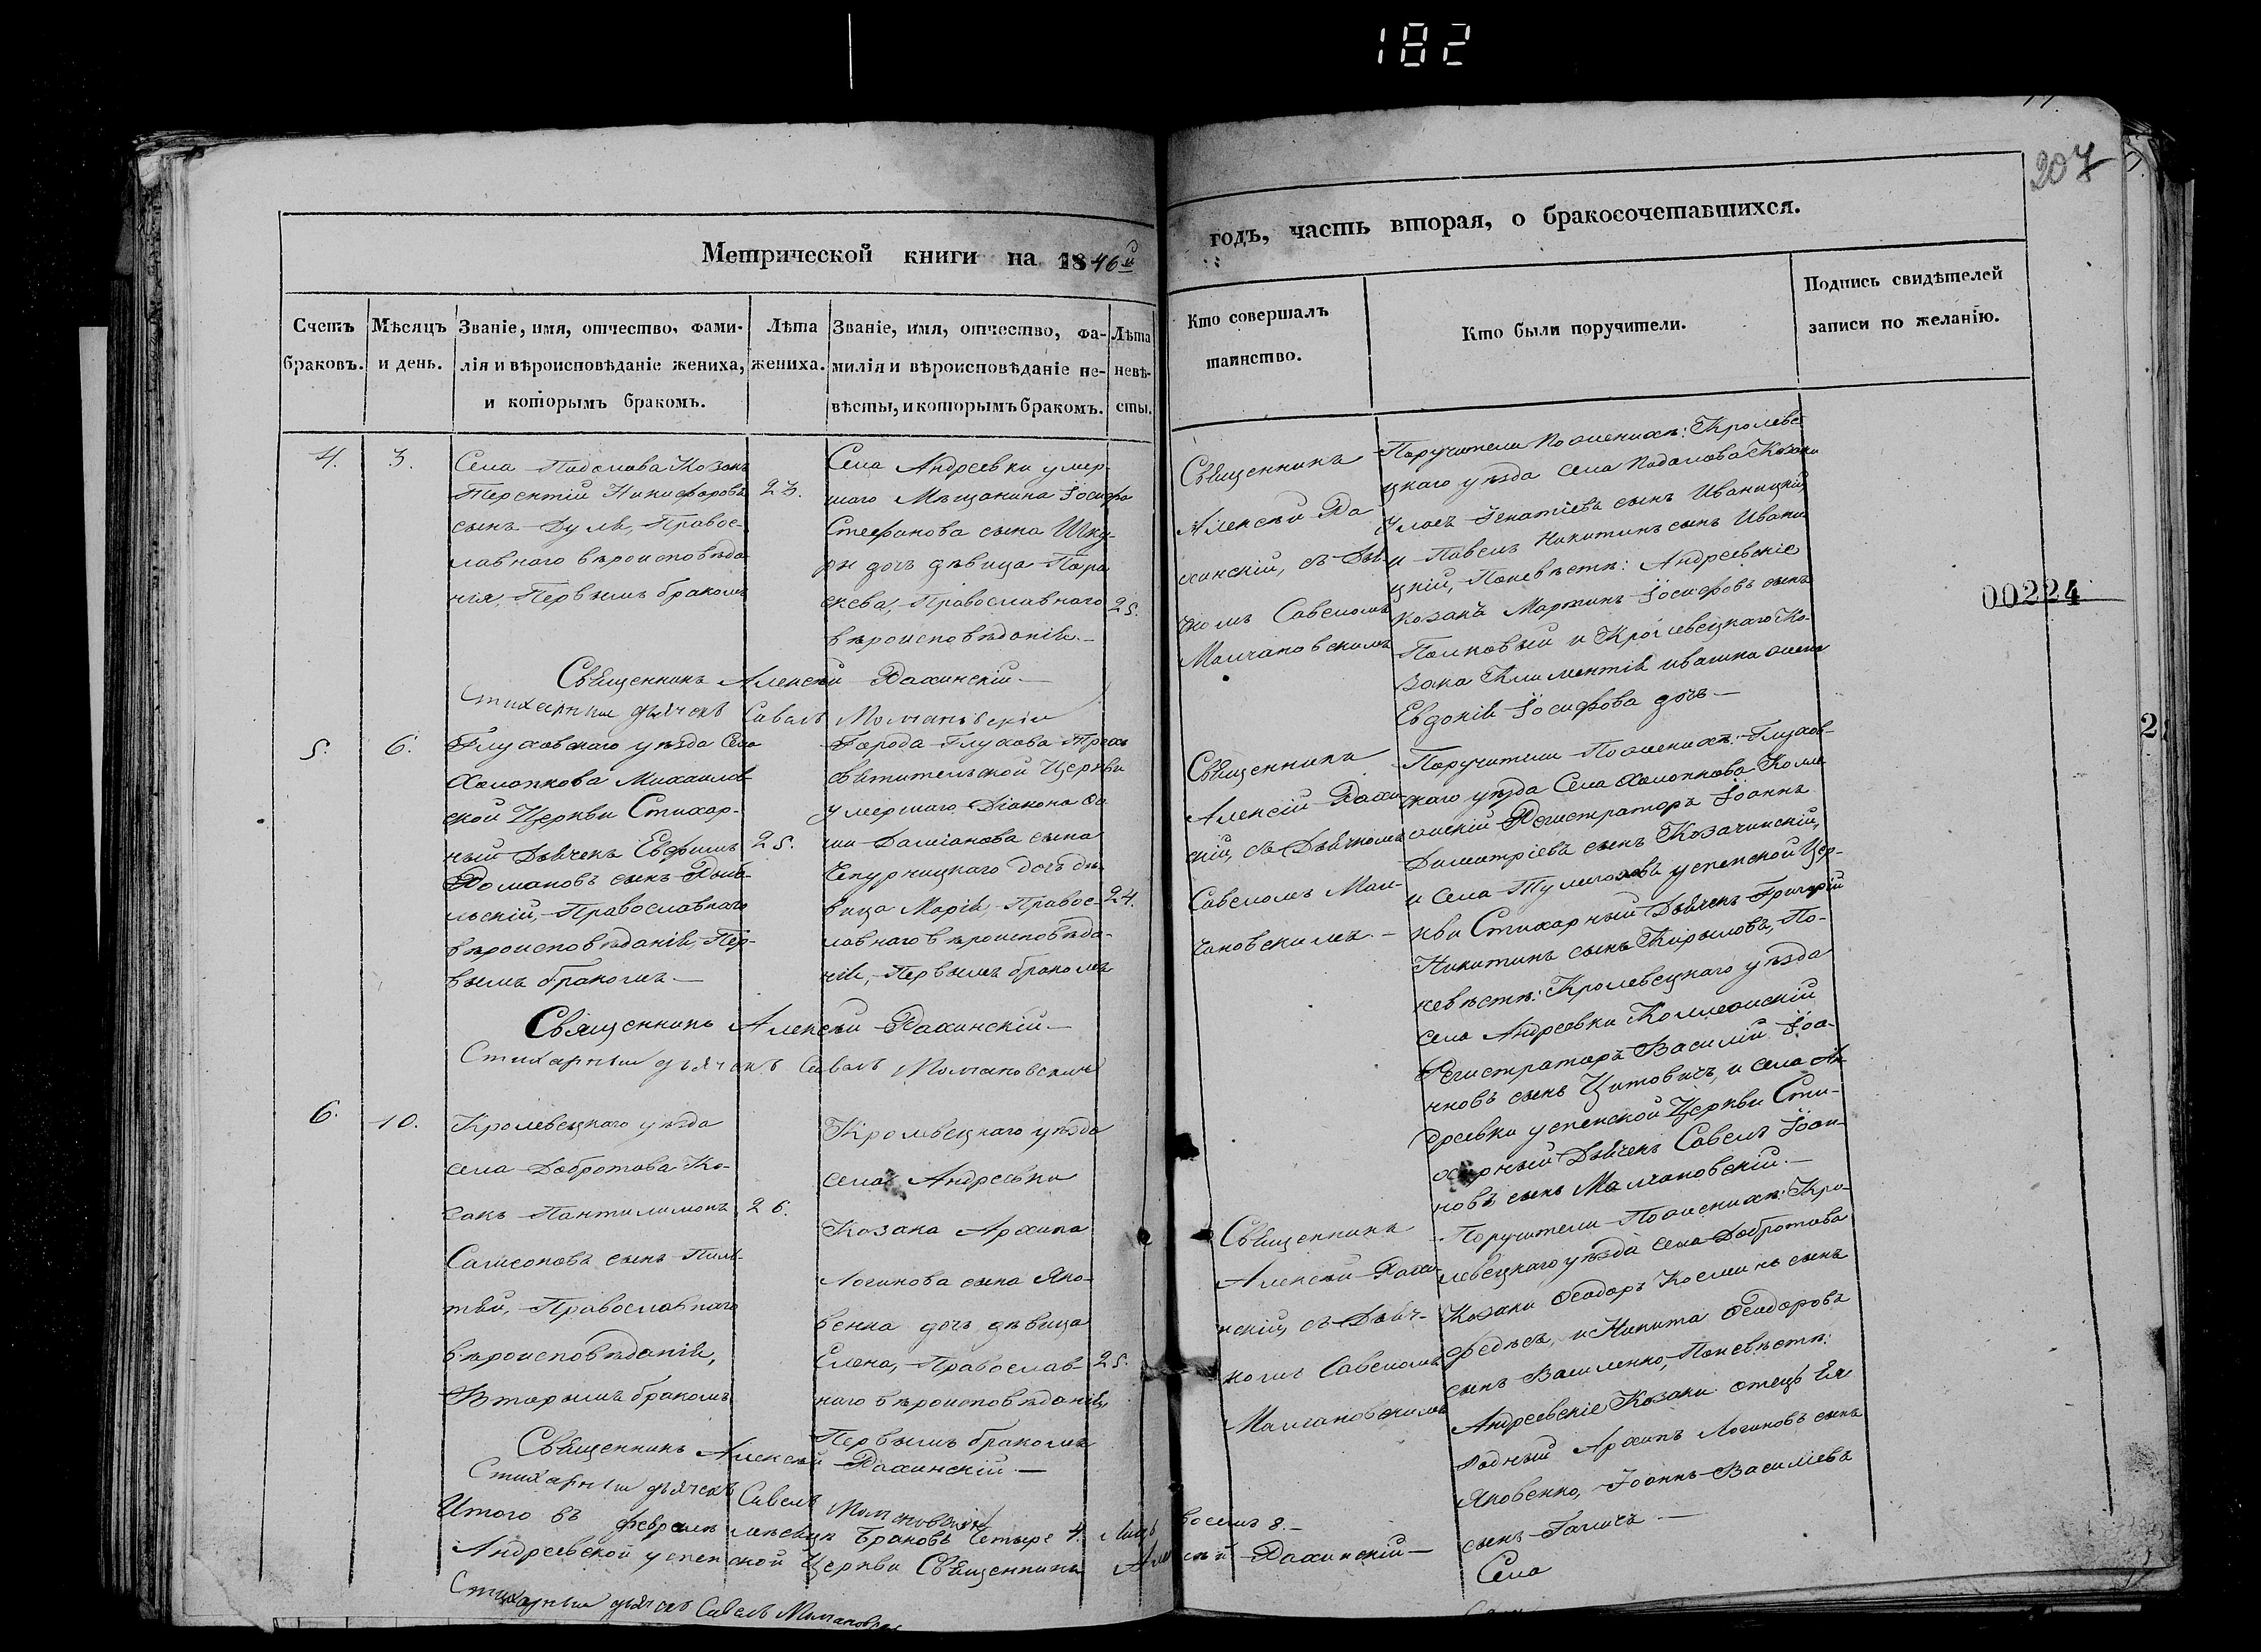 182
207
Метрической книги на 1846й
годъ, часть вторая, о бракосочетавшихся.
Счетъ браковъ.
Мѣсяцъ и день.
Званіе, имя, отчество, фами-
лія и вѣроисповѣданіе жениха,
и которымъ бракомъ.
Лѣта
жениха.
Званіе, имя, отчество, фа-
милія и вѣроисповѣданіе не-
вѣсты, и которымъ бракомъ.
Лѣта
невѣ-
сты.
Кто совершалъ
таинство.
Кто были поручители.
Подпись свидѣтелей
записи по желанію.
4.
3.
Села Подолова Козакъ
Терентій Никифоровъ
сынъ Дуля, Правос-
лавнаго вѣроисповѣда
нія, Первымъ бракомъ
23.
Села Андреевки умер-
шаго Мѣщанина Іосифа
Стефанова сына Шку-
ры дочь дѣвица Пара
скева, Православнаго
вѣроисповѣданія
25.
Священникъ
Алексѣй Ра
хинскій, съ Дья
комъ Савеломъ
Малчановскимъ
Поручители По женихѣ: Кролеве
цкаго уѣзда села Подолова Козаки
Игнатіевъ сынъ Иваницкій
и Павелъ Никитинъ сынъ Ивани
цкій, По невѣстѣ: Андреевскіе
козакъ Мартинъ Іосифовъ сынъ
и Кролевецкаго Ко-
зака Климентія жена
Евдокія Іосифова дочь
Священникъ Алексѣй Рахинскій
Стихарный дьячекъ Савелъ Молчановскій
00224
5.
6.
Глуховскаго уѣзда Села
Холопкова Михаилов
ской Церкви Стихар-
ный Дьячекъ Евфимъ
Романовъ сынъ
Православнаго
вѣроисповѣданія, Пер-
вымъ бракомъ
25.
Города Глухова Трехъ
святительской Церкви
умершаго Діакона
Даміанова сына
дочь дѣ-
вица Марія, Правос-
лавнаго вѣроисповѣда-
нія, Первымъ бракомъ
24.
Священникъ
Алексій Рахин
скій, съ Дьячкомъ
Савеломъ Мал-
чановскимъ
Поручители По женихѣ: Глухов-
скаго уѣзда Села Холопкова Колле
жскій Регистраторъ Іоаннъ
Димитріевъ сынъ Козачинскій,
и села Тулиголовъ успенской Цер-
кви Стихарный Дьячекъ Григорій
Никитинъ сынъ Кириловъ, По-
невѣстѣ: Кролевецкаго уѣзда
села Андреевки Коллежскій
Регистраторъ Василій Іоа-
нновъ сынъ Цитовичъ, и села Ан
дреевки успенской Церкви Сти-
харный Дьячекъ Савелъ Іоан-
новъ сынъ Малчановскій.
Священникъ Алексѣй Рахинскій
Стихарный дьячекъ Савелъ Молчановскій
6.
10.
Кролевецкаго уѣзда
села Добротова Ко-
закъ Пантилимонъ
Самсоновъ сынъ
Православнаго
вѣроисповѣданія,
Вторымъ бракомъ
26.
Кролевецкаго уѣзда
села Андреевки
Козака Архипа
Логинова сына Яко-
венка дочь дѣвица
Елена, Православ-
наго вѣроисповѣданія,
Первымъ бракомъ
25.
Священникъ
Алексѣй Рахи-
нскій, съ Дьяч-
комъ Савеломъ
Малчановскимъ
Поручители По женихѣ: Кро-
левецкаго уѣзда села Добротова
Козаки Ѳеодоръ Косминъ сынъ
и Никита Ѳеодоровъ
сынъ Василенко, По невѣстѣ:
Андреевскіе Козаки отецъ Ея
родный Архипъ Логиновъ сынъ
Яковенко, Іоаннъ Василіевъ
сынъ
Священникъ Алексѣй Рахинскій
Стихарный дьячекъ Савелъ Молчановскій
Итого въ февралѣ мѣсяцѣ Браковъ Четыре 4. Лицъ восемь 8.
Андреевской успенской Церкви Священникъ Алексѣй Рахинскій
Стихарный дьячекъ Савелъ Молчановскій
Села